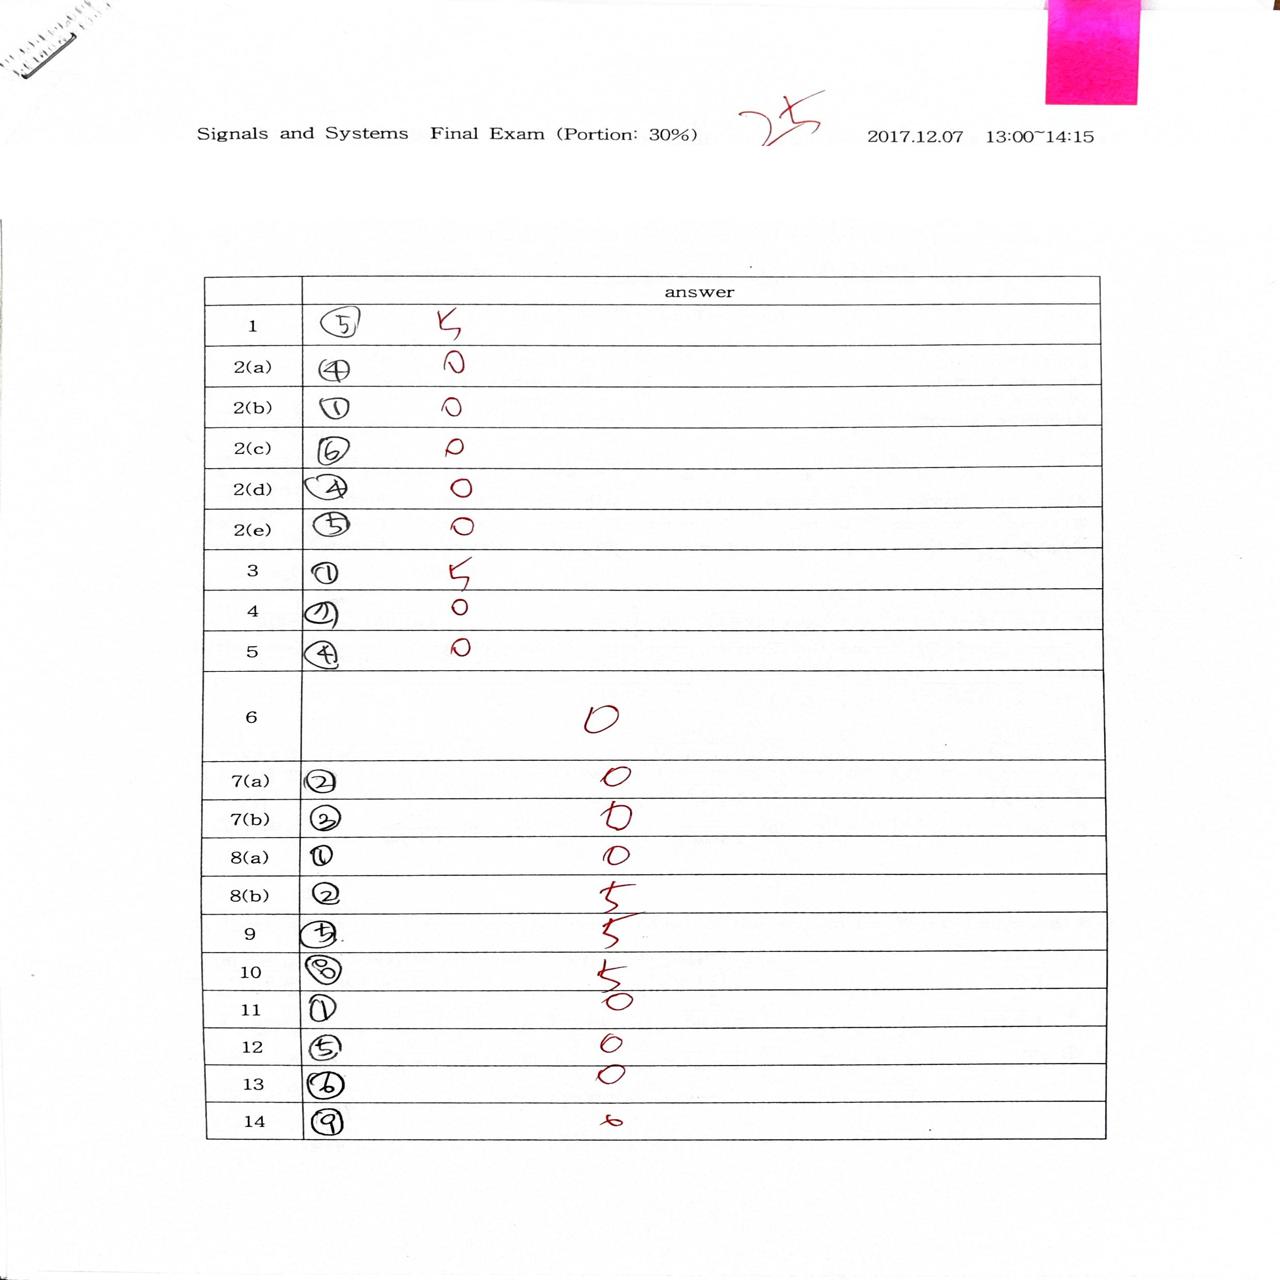 Signals and Systems Final Exam (Portion: 30%) 25 2017.12.07 13:00~14:15
answer
1 ⑤ 5
2(a) ④ 0
2(b) ① 0
2(c) ⑥ 0
2(d) ④ 0
2(e) ⑤ 0
3 ① 5
4 0
5 ④ 0
6 0
7(a) ② 0
7(b) ③ 0
8(a) ① 0
8(b) ② 5
9 ⑤ 5
10 ⑧ 5
11 ① 0
12 ⑤ 0
13 ⑥ 0
14 ⑨ 0